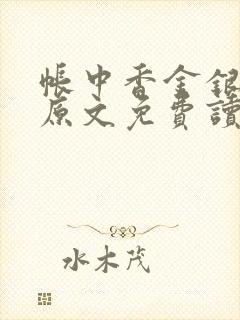 帳中香金銀
原文免費讀
水木茂